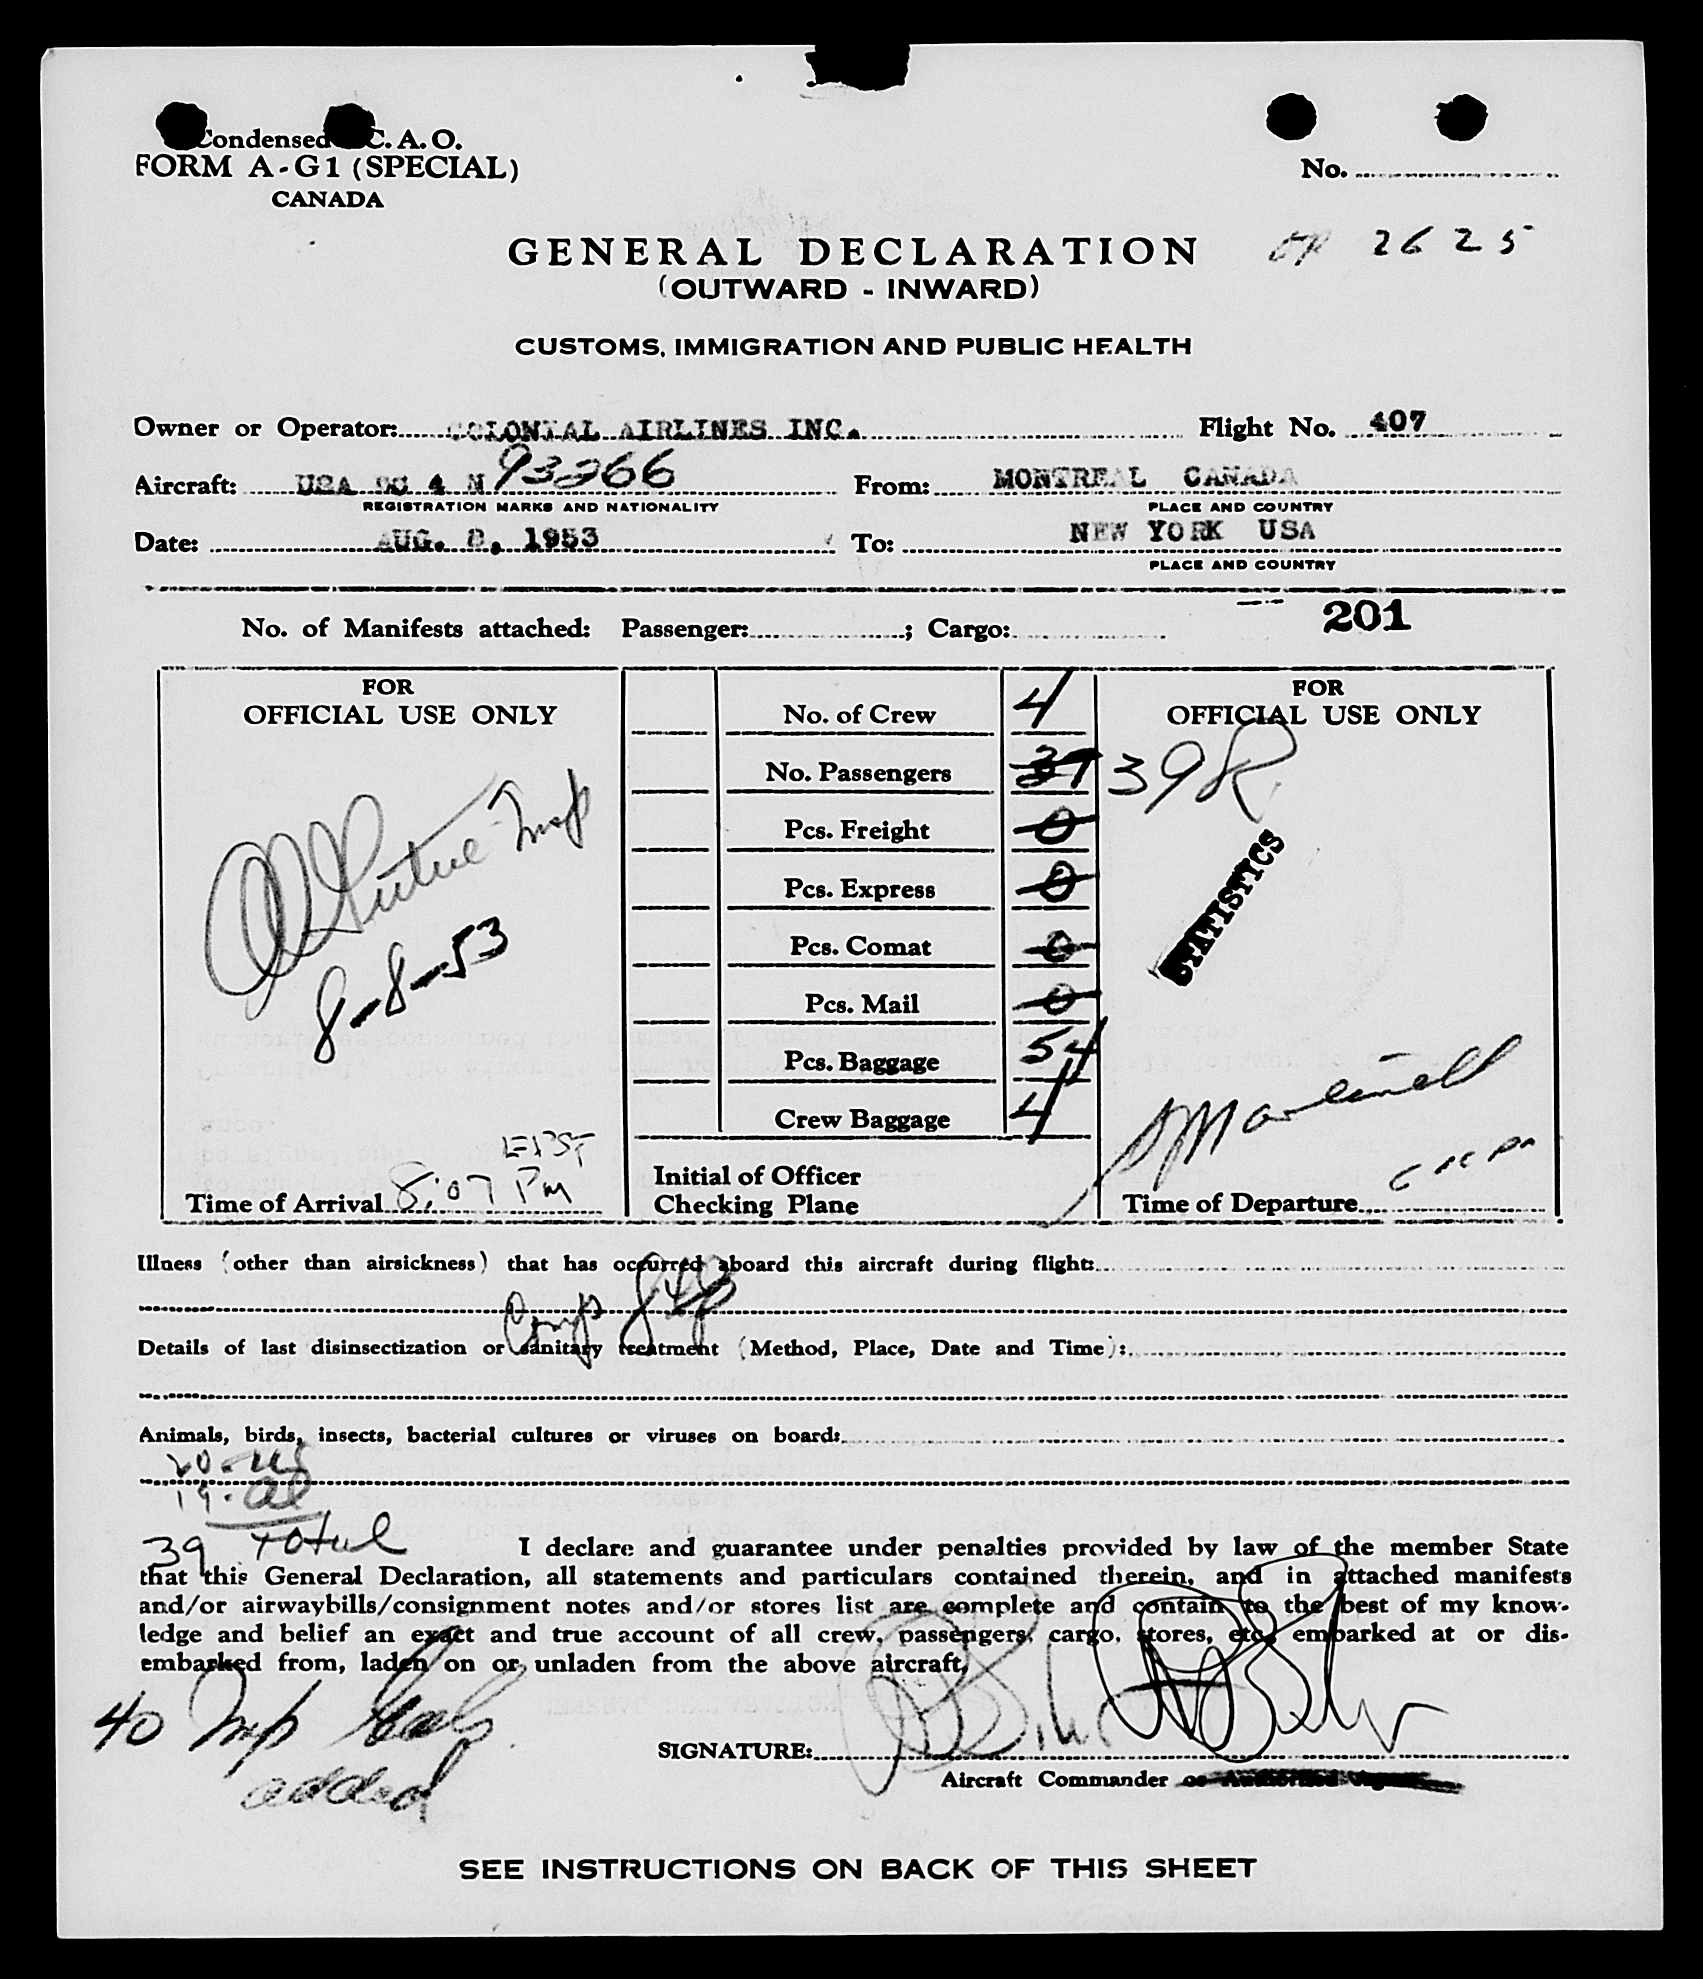 Condensed C.A.O.
FORM A-G1 (SPECIAL)
CANADA
No.
2625
GENERAL DECLARATION
(OUTWARD - INWARD)
CUSTOMS, IMMIGRATION AND PUBLIC HEALTH
Owner or Operator: COLONIAL AIRLINES INC. Flight No. 407
Aircraft: USA DC 4 N 93266 From: MONTREAL CANADA
REGISTRATION MARKS AND NATIONALITY PLACE AND COUNTRY
Date: AUG. 8, 1953 To: NEW YORK USA
PLACE AND COUNTRY
No. of Manifests attached: Passenger: ; Cargo: 201
FOR OFFICIAL USE ONLY
8-8-53
Time of Arrival 8:07 PM
No. of Crew 4
No. Passengers 37 39
Pcs. Freight 0
Pcs. Express 0
Pcs. Comat 0
Pcs. Mail 0
Pcs. Baggage 54
Crew Baggage 4
Initial of Officer
Checking Plane
FOR
OFFICIAL USE ONLY
STATISTICS
Time of Departure
Illness (other than airsickness) that has occurred aboard this aircraft during flight:
Details of last disinsectization or sanitary treatment (Method, Place, Date and Time):
Animals, birds, insects, bacterial cultures or viruses on board:
20-US
19-al
39 Total
I declare and guarantee under penalties provided by law of the member State
that this General Declaration, all statements and particulars contained therein, and in attached manifests
and/or airwaybills/consignment notes and/or stores list are complete and contain to the best of my know-
ledge and belief an exact and true account of all crew, passengers, cargo, stores, etc. embarked at or dis-
embarked from, laden on or unladen from the above aircraft.
40 Imp
added
SIGNATURE:
Aircraft Commander or Authorized Agent
SEE INSTRUCTIONS ON BACK OF THIS SHEET